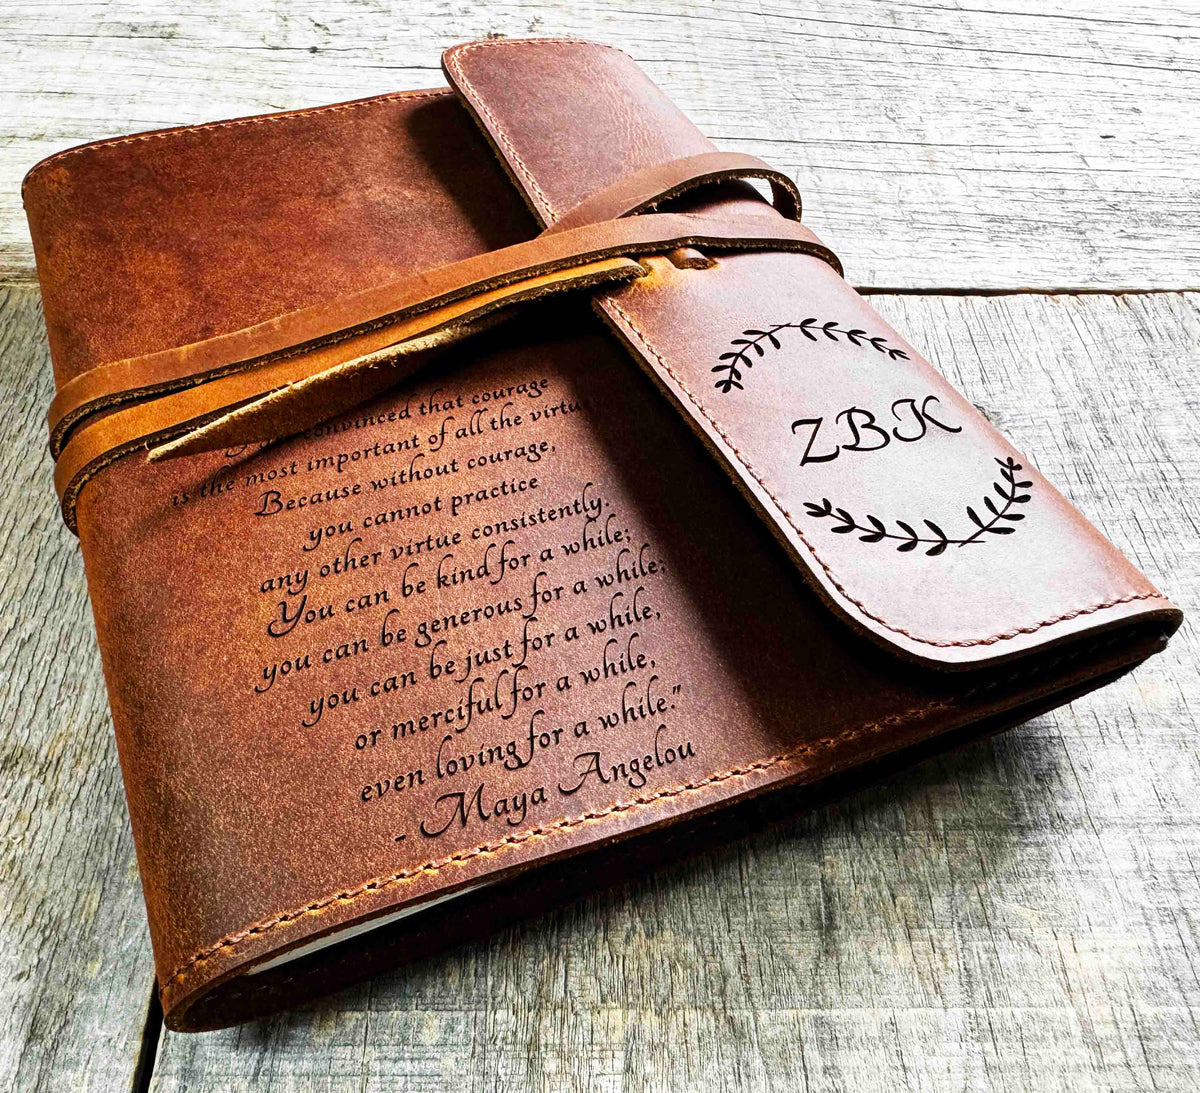 convinced that courage
is the most important of all the
Because without courage,
you cannot practice
any other virtue consistently.
You can be kind for a while;
you can be generous for a while;
you can be just for a while,
or merciful for a while,
even loving for a while."
- Maya Angelou
ZBK